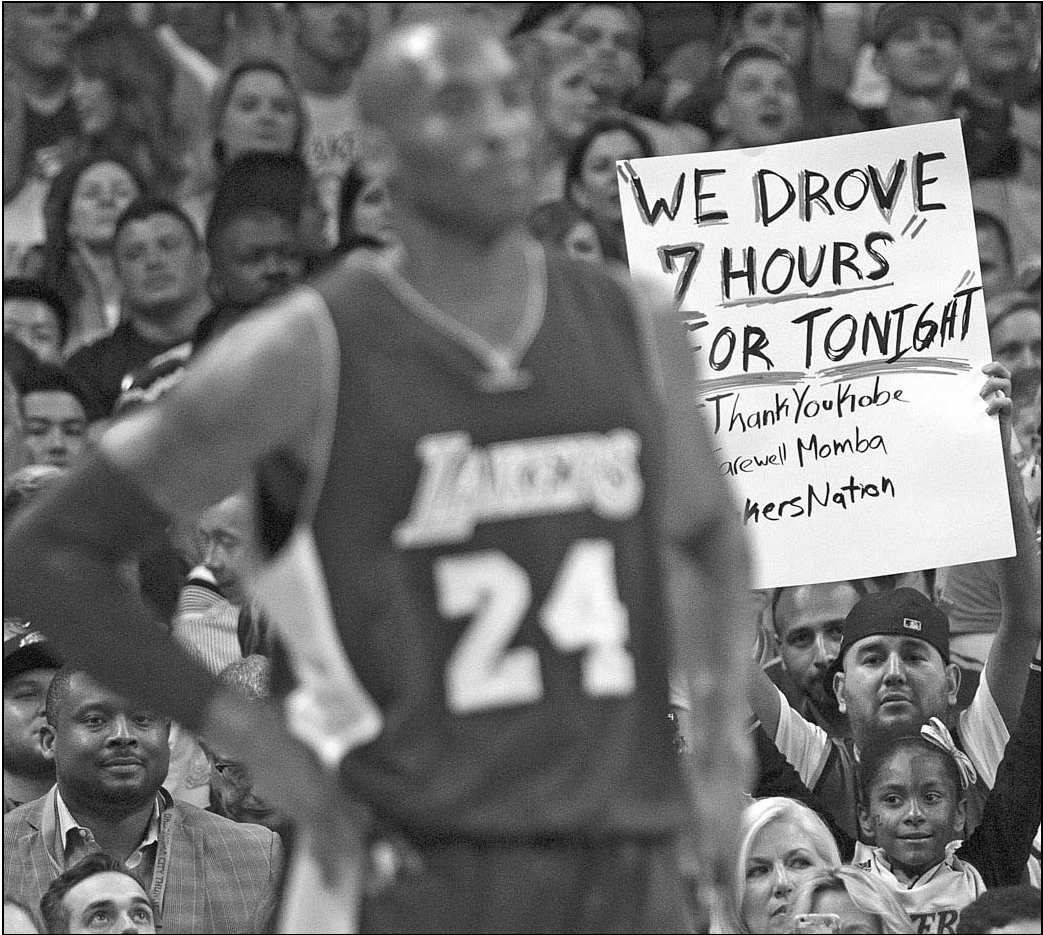 "WE DROVE
7 HOURS"
FOR TONIGHT"
ThankYouKobe
arewell Momba
kersNation
LAKERS
24
ER